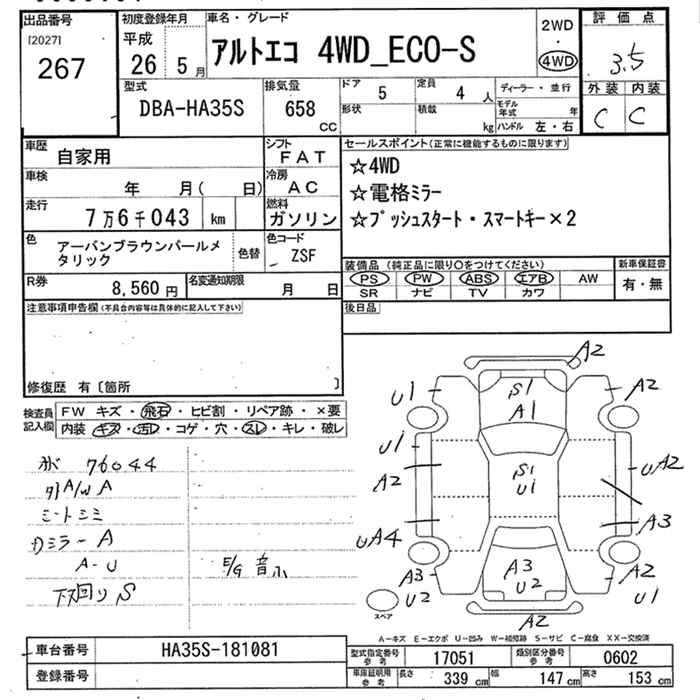 出品番号
[2027]
267
初度登録年月
平成
26 5 月
車名・グレード
アルトエコ 4WD_ECO-S
2WD
・
4WD
評価点
3.5
外装 内装
C C
型式
DBA-HA35S
排気量
658
CC
ドア 5
形状
定員 4 人
積載 kg
ディーラー・並行
モデル年式 年
ハンドル 左・右
車歴
自家用
シフト
FAT
車検
年 月( 日)
冷房
AC
走行
7万6千043 km
燃料
ガソリン
色
アーバンブラウンパールメタリック
色替
色コード
ZSF
R券
8,560 円
名変通知期限
月 日
セールスポイント(正常に機能するものに限ります)
☆4WD
☆電格ミラー
☆プッシュスタート・スマートキー×2
装備品 (純正品に限り〇をつけてください)
PS PW ABS エアB AW
SR ナビ TV カワ
新車保証書
有・無
後日品
注意事項申告欄(不具合内容等は具体的に記入して下さい)
修復歴 有〔箇所 〕
検査員記入欄
FW キズ・飛石・ヒビ割・リペア跡・×要
内装 キズ・汚レ・コゲ・穴・スレ・キレ・破レ
76044
外A/W A
シートシミ
カミラー A
A-U
下回り S
E/G 音小
A2
U1
S1
A1
A2
U1
A2
S1
U1
UA2
A3
UA4
A3
U2
A3
U2
A2
U1
A2
スペア
A-キズ E-エクボ U-凹み W-補修跡 S-サビ C-腐食 XX-交換済
車台番号
HA35S-181081
登録番号
型式指定番号
参考
17051
類別区分番号
参考
0602
車庫証明用
参考
長さ 339 cm
幅 147 cm
高さ 153 cm